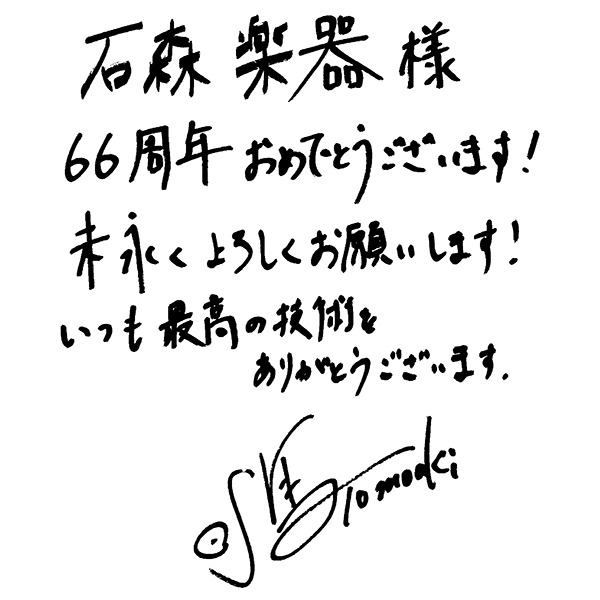 石森楽器様
66周年おめでとうございます!
末永くよろしくお願いします!
いつも最高の技術を
ありがとうございます.
Tomoaki